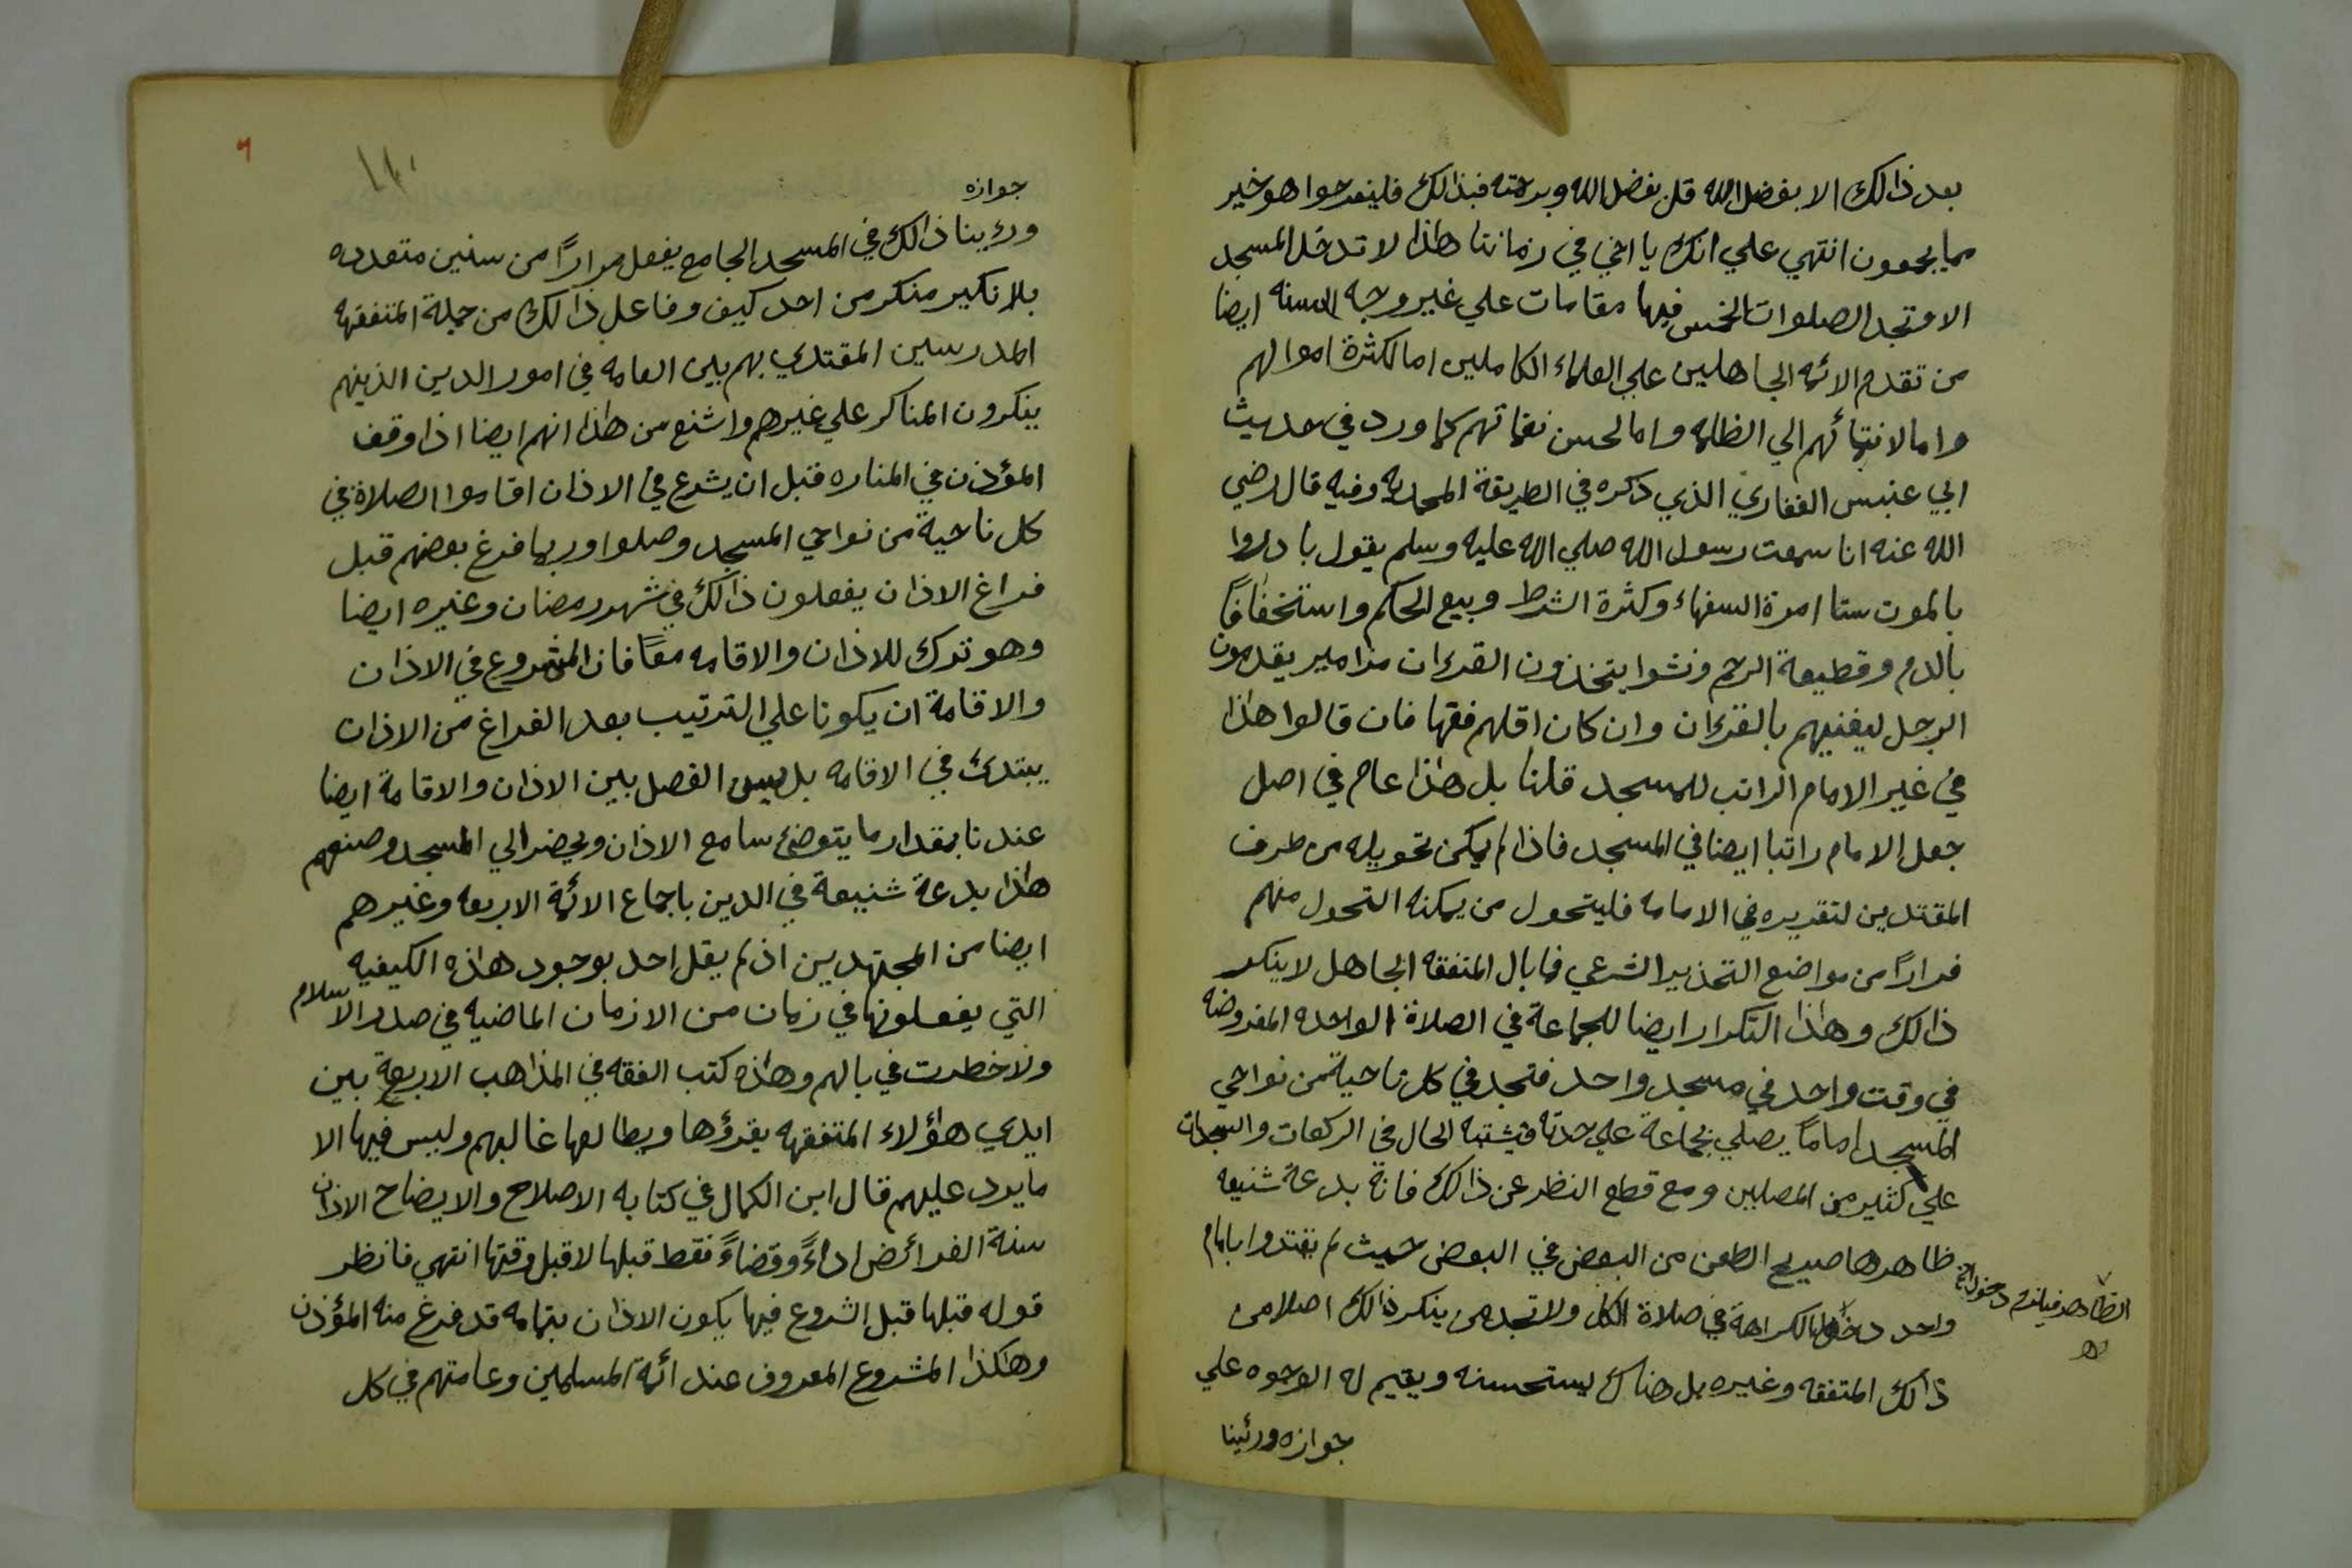 بعد ذالك الا بفضل الله قل بفضل الله وبرحمته فبذالك فليفرحوا هو خير
مما يجمعون انتهي علي انك يا اخي في زماننا هذا لا تدخل المسجد
الا وتجد الصلوات الخمس فيها مقامات علي غير وجه السنه ايضا
من تقدم الائمه الجاهلين علي العلماء الكاملين اما لكثرة اموالهم
واما لانتمائهم الي الظلمه واما لحسن نغماتهم كما ورد في حديث
ابي عنبس الغفاري الذي ذكره في الطريقة المحمديه وفيه قال رضي
الله عنه انا سمعت رسول الله صلي الله عليه وسلم يقول بادروا
بالموت ستا امرة السفهاء وكثرة الشرط وبيع الحكم واستخفافاً
بالدم وقطيعة الرحم ونشوا يتخذون القرءان مزامير يقدمون
الرجل ليغنيهم بالقرءان وان كان اقلهم فقها فان قالوا هذا
في غير الامام الراتب للمسجد قلنا بل هذا عام في اصل
جعل الامام راتبا ايضا في المسجد فاذا لم يمكن تحويله من طرف
المقتدين لتقريره في الامامه فليتحول من يمكنه التحول منهم
فراراً من مواضع التحذير الشرعي فما بال المتفقه الجاهل لا ينكر
ذالك وهذا التكرار ايضا للجماعة في الصلاة الواحده المفروضه
في وقت واحد في مسجد واحد فتجد في كل ناحية من نواحي
المسجد اماماً يصلي بجماعة علي حدته فيشتبه الحال في الركعات والسجدات
علي كثير من المصلين ومع قطع النظر عن ذالك فانه بدعة شنيعه
ظاهرها صريح الطعن من البعض في البعض حيث لم يقتدوا بامام
واحد دخول الكراهة في صلاة الكل ولا تجد من ينكر ذالك اصلا من
ذالك المتفقه وغيره بل هناك يستحسنه ويقيم له الوجوه علي
جوازه ورئينا
جوازه
ورءينا ذالك في المسجد الجامع يفعل مراراً من سنين متعدده
بلا نكير منكر من احد كيف وفاعل ذالك من جملة المتفقهه
المدرسين المقتدي بهم بين العامه في امور الدين الذينهم
ينكرون المناكر علي غيرهم واشنع من هذا انهم ايضا اذا وقف
المؤذن في المناره قبل ان يشرع في الاذان اقاموا الصلاة في
كل ناحية من نواحي المسجد وصلوا وربما فرغ بعضهم قبل
فراغ الاذان يفعلون ذالك في شهر رمضان وغيره ايضا
وهو ترك للاذان والاقامه معاً فان المشروع في الاذان
والاقامة ان يكونا علي الترتيب بعد الفراغ من الاذان
يبتدئ في الاقامه بل يسن الفصل بين الاذان والاقامة ايضا
عندنا بمقدار ما يتوضئ سامع الاذان ويحضر الي المسجد وصنعهم
هذا بدعة شنيعة في الدين باجماع الائمة الاربعه وغيرهم
ايضا من المجتهدين اذ لم يقل احد بوجود هذه الكيفيه
التي يفعلونها في زمان من الازمان الماضيه في صدر الاسلام
ولا خطرت في بالهم وهذه كتب الفقه في المذاهب الاربعة بين
ايدي هؤلاء المتفقهه يقرؤها ويطالعها غالبهم وليس فيها الا
ما يرد عليهم قال ابن الكمال في كتابه الاصلاح والايضاح الاذان
سنة الفرائض اداءً وقضاءً فقط قبلها لا قبل وقتها انتهي فانظر
قوله قبلها قبل الشروع فيها يكون الاذان بتمامه قد فرغ منه المؤذن
وهكذا المشروع المعروف عند ائمة المسلمين وعامتهم في كل